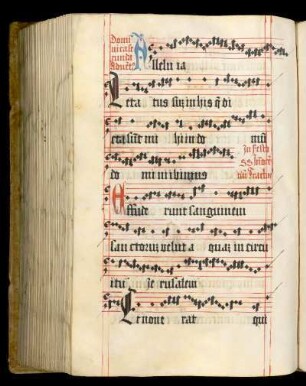 Domi
nica se
cunda
Aduēt9
Alleluia
Leta tus sū in his q̄ di
cta sūt mi hi in do mū
do mini ibimus
In festo
Effude runt sanguinem
san ctorū velut a quā in circu
itu Je rusalem
Et non e rat qui